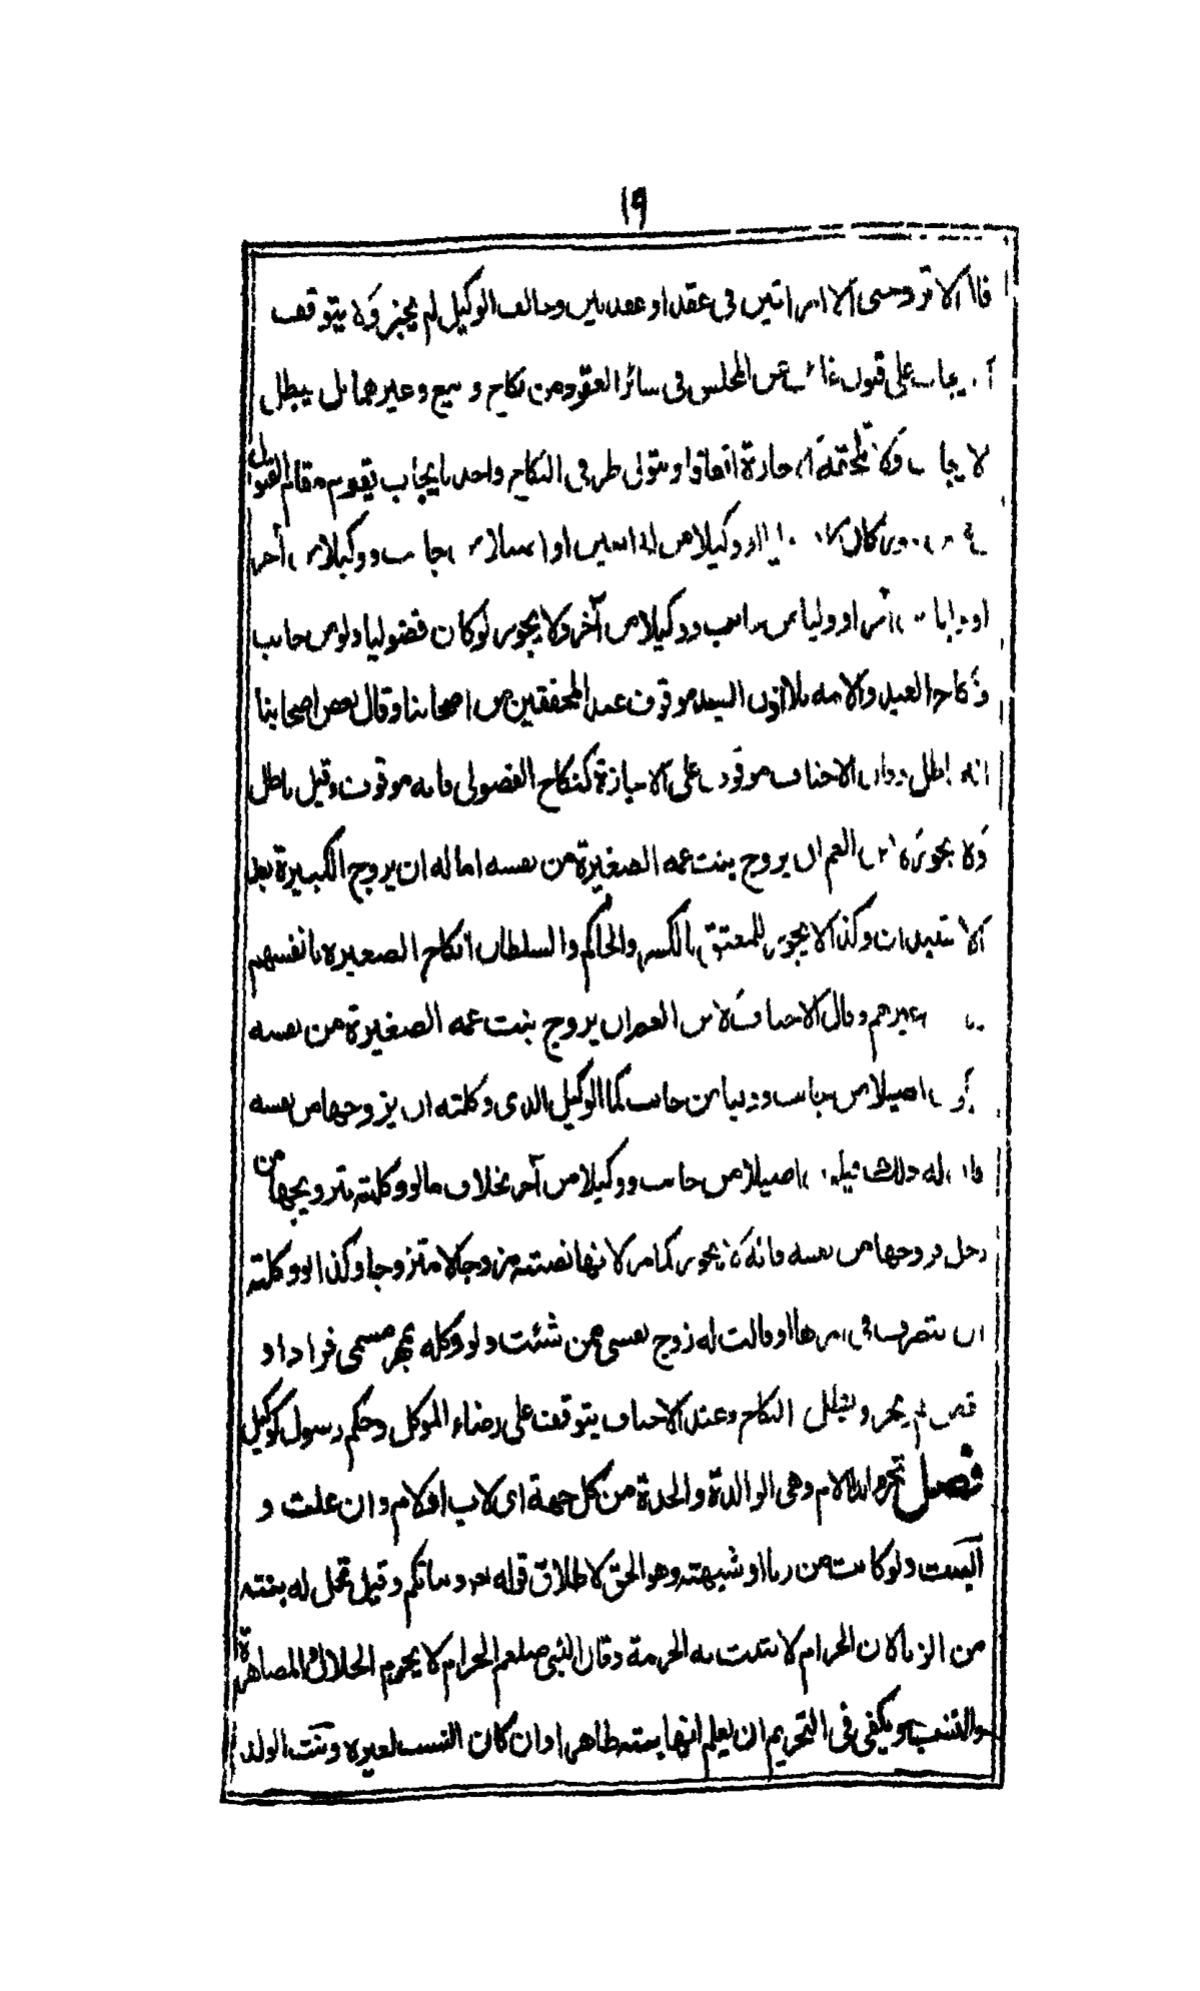 ١٩
قالا لا تزوجنى الا امراتين فى عقد او عقدين وخالف الوكيل لم يجز ولا يتوقف
على قبول غائب عن المجلس فى سائر العقود من نكاح وبيع وغيرهما بل يبطل
لا يجاب ولا اتفاقا ويتولى طرفى النكاح واحد بايجاب يقوم مقام القبول
كان او وكيلا من الجانبين او اصيلا من جانب ووكيلا من آخر
او وليا من جانب ووكيلا من آخر ولا يجوز لو كان فضوليا ولو من جانب
ونكاح العبد والامة بلا اذن السيد موقوف عند المحققين من اصحابنا وقال بعض اصحابنا
انه باطل وقال الاحناف موقوف على الاجازة كنكاح الفضولى فانه موقوف وقيل باطل
ولا يجوز لابن العم ان يزوج بنت عمه الصغيرة من نفسه اما له ان يزوج الكبيرة بعد
الاستيذان وكذا لا يجوز للمعتق بالكسر والحاكم والسلطان انكاح الصغيرة بانفسهم
غيرهم وقال الاحناف لابن العم ان يزوج بنت عمه الصغيرة من نفسه
اصيلا من جانب ووليا من جانب كما الوكيل الذى وكلته ان يزوجها من نفسه
فان له ذلك فيكون اصيلا من جانب ووكيلا من آخر بخلاف مالو وكلته بتزويجها من
رجل فزوجها من نفسه فانه لا يجوز كما مر لانها نصبته مزوجا لا متزوجا وكذا لو وكلته
ان يتصرف فى امرها او قالت له زوج نفسى ممن شئت ولو وكله بمهر مسمى فزاد او
نقص لم يجز ويبطل النكاح وعند الاحناف يتوقف على رضاء الموكل وحكم رسول كوكيل
فصل تحرم الام وهى الوالدة والجدة من كل جهة اى لاب او لام وان علت و
البنت ولو كانت من زنا او شبهته وهو الحق لاطلاق قوله وبناتكم وقيل تحل له بنته
من الزنا لان الحرام لا يثبت به الحرمة وقال النبى صلعم الحرام لا يحرم الحلال والمصاهرة
والنسب ويكفى فى التحريم ان يعلم انها بنته ظاهرا وان كان النسب لغيره وبنت الولد